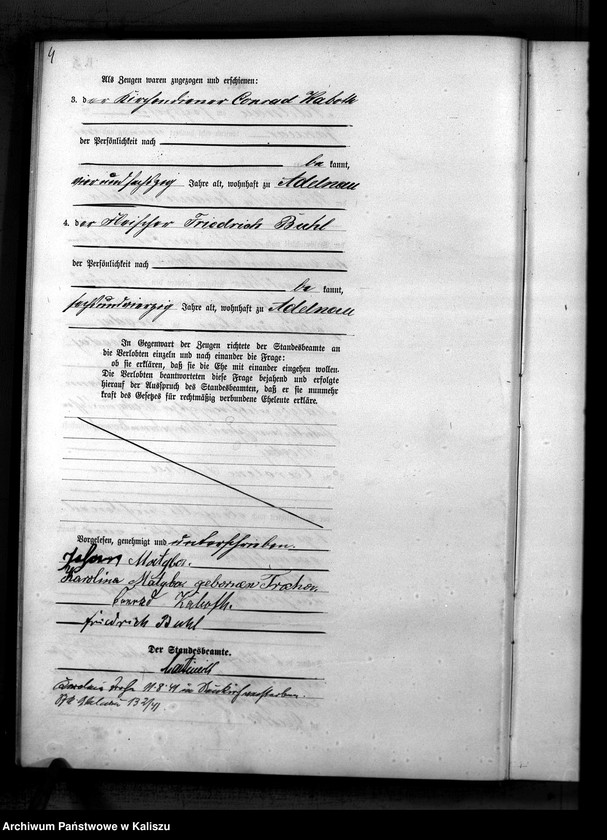 4
Als Zeugen waren zugezogen und erschienen:
3. der Kirchendiener Conrad Kaboth
der Persönlichkeit nach
be kannt,
vierundsechzig Jahre alt, wohnhaft zu Adelnau
4. der Fleischer Friedrich Buhl
der Persönlichkeit nach
be kannt,
sechsundvierzig Jahre alt, wohnhaft zu Adelnau
In Gegenwart der Zeugen richtete der Standesbeamte an
die Verlobten einzeln und nach einander die Frage:
ob sie erklären, daß sie die Ehe mit einander eingehen wollen.
Die Verlobten beantworteten diese Frage bejahend und erfolgte
hierauf der Ausspruch des Standesbeamten, daß er sie nunmehr
kraft des Gesetzes für rechtmäßig verbundene Eheleute erkläre.
Vorgelesen, genehmigt und unterschrieben.
Johan Matyba.
Karolina Matyba geborene
Conrad Kaboth.
Friedrich Buhl
Der Standesbeamte.
11.8.41 in verstorben.
Adelnau
Archiwum Państwowe w Kaliszu